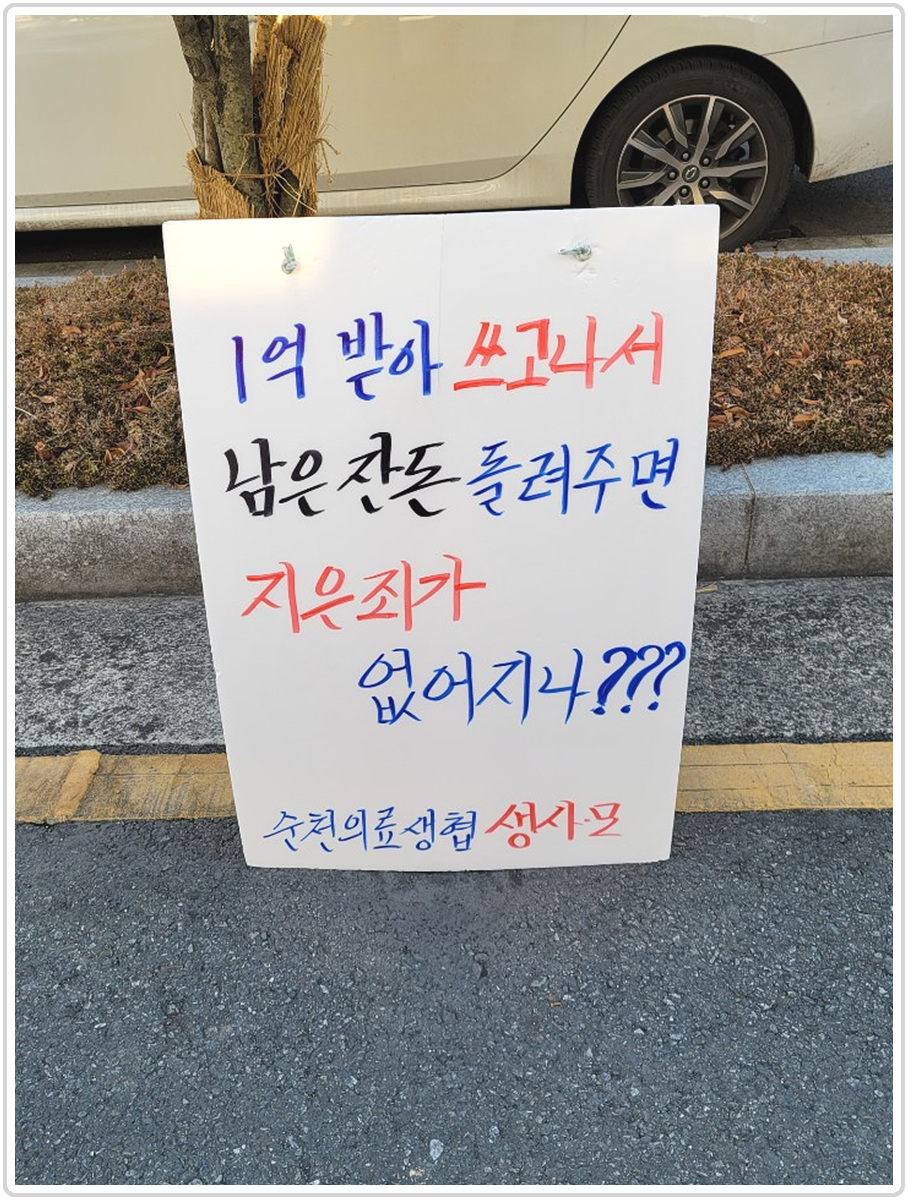 1억 받아 쓰고나서
남은 잔돈 돌려주면
지은죄가
없어지나???
순천의료생협 생사·모